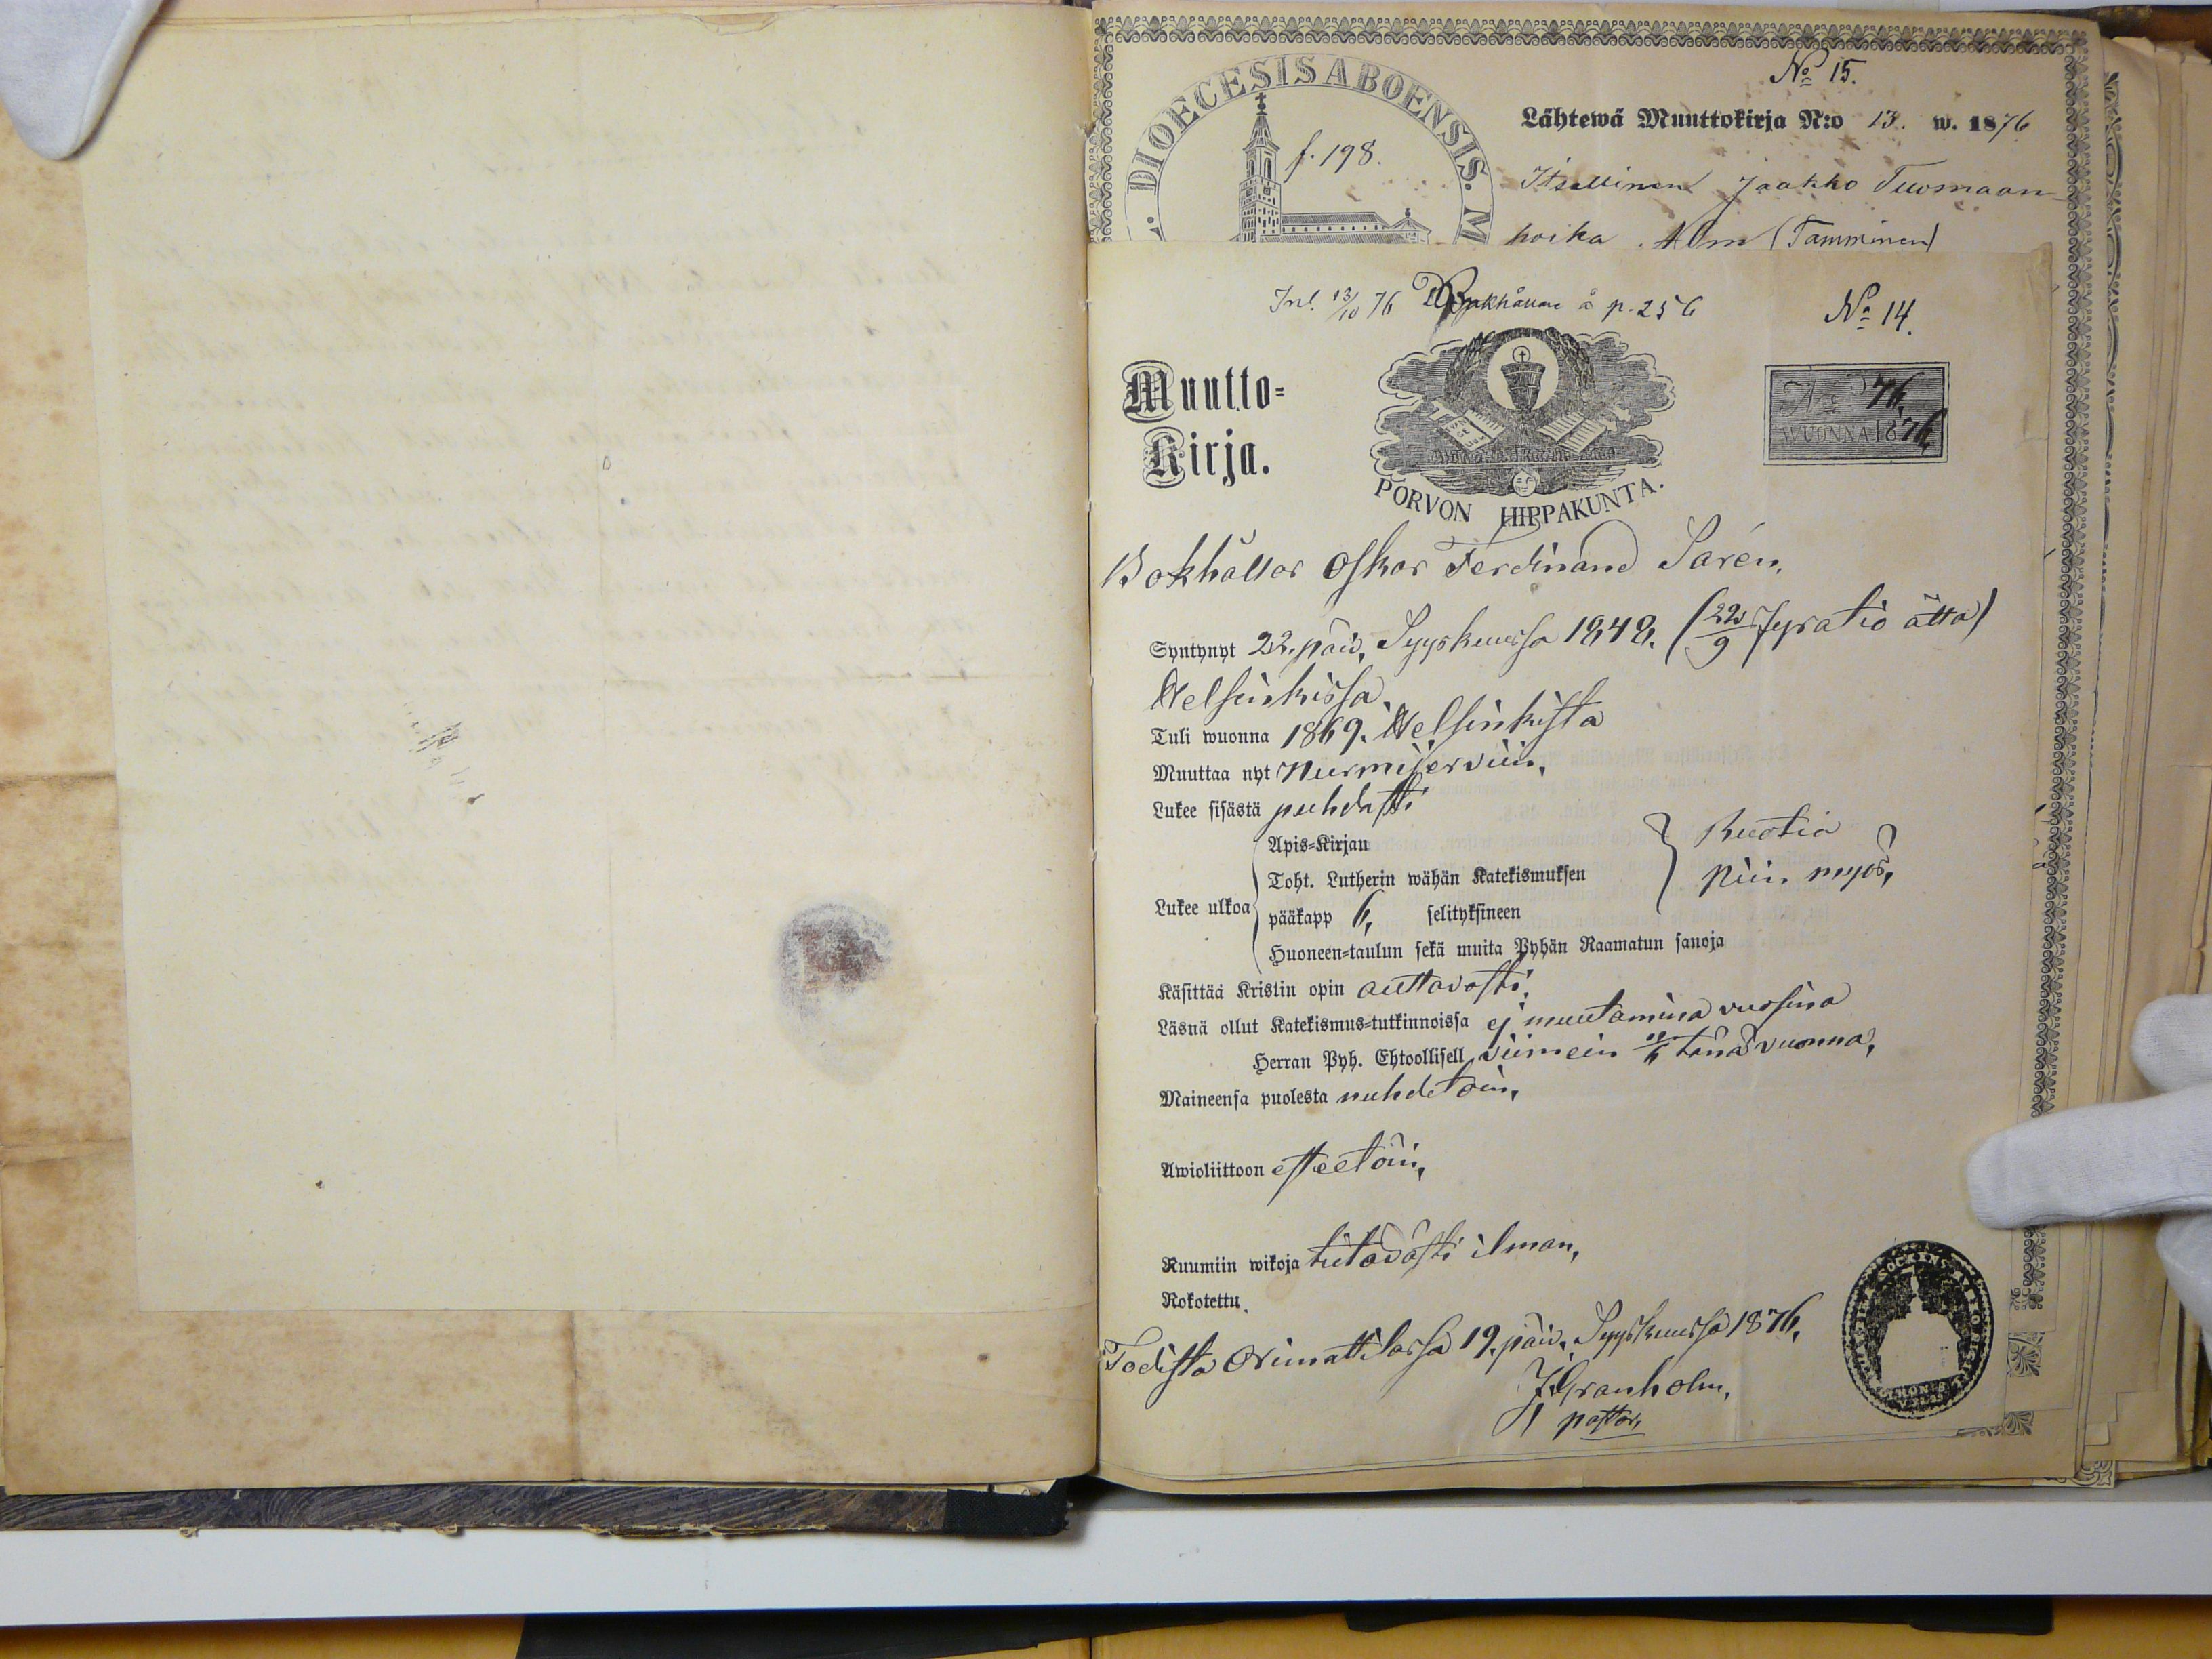 DIOECESIS ABOENSIS. M
f. 198.
No 15.
Lähtewä Muuttokirja N:o 13. w. 1876
Itsellinen Jaakko Tuomaan
poika (Tamminen)
Inl. 13/10 76 Bokhållare å p. 256
No 14.
Muutto=
Kirja.
EVAN
GE
LIUM
PORVON HIPPAKUNTA.
No 76,
WUONNA 1876,
Bokhållor Oskar Ferdinand Sarén,
Syntynyt 22. päiv. Syyskuussa 1848. (22/9 fyratio åtta)
Helsinkissa.
Tuli wuonna 1869. Helsinkista
Muuttaa nyt Nurmijerviin,
Lukee sisästä puhdasti
Lukee ulkoa
Apis=Kirjan
Toht. Lutherin wähän Katekismuksen
pääkapp 6, selityksineen
Huoneen=taulun sekä muita Pyhän Raamatun sanoja
Ruotia
niin myös,
Käsittää Kristin opin auttavasti,
Läsnä ollut Katekismus=tutkinnoissa ej muutamina vuosina
Herran Pyh. Ehtoollisell viimein tänä vuonna,
Maineensa puolesta nuhdetoin,
Awioliittoon esteetöin,
Ruumiin wikoja tietävästi ilman,
Rokotettu.
Todista Orimattilassa 19. päiv. Syyskuussa 1876,
J. Granholm,
pastor,